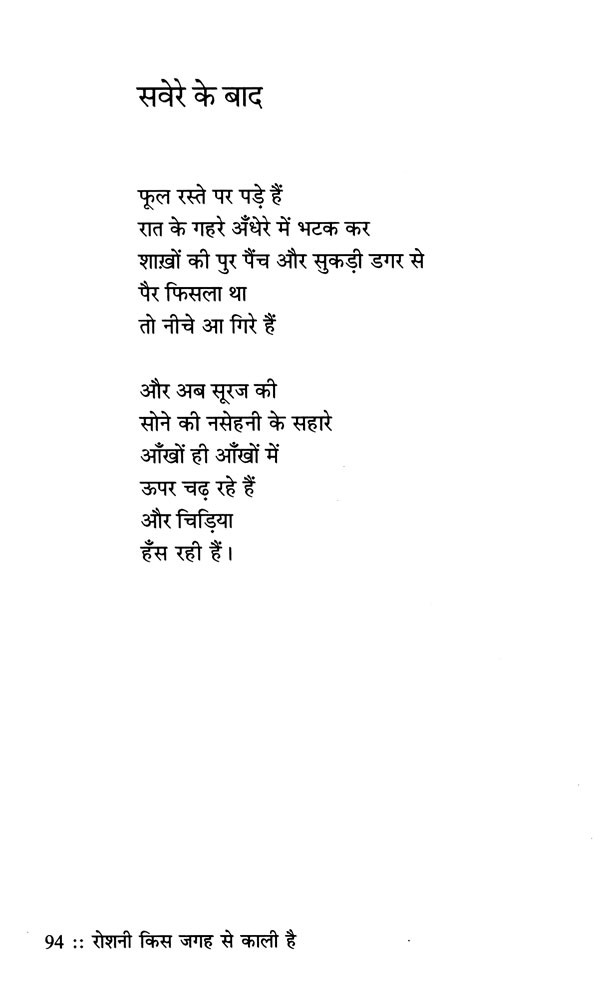 सवेरे के बाद
फूल रस्ते पर पड़े हैं
रात के गहरे अँधेरे में भटक कर
शाख़ों की पुर पैंच और सुकड़ी डगर से
पैर फिसला था
तो नीचे आ गिरे हैं
और अब सूरज की
सोने की नसेहनी के सहारे
आँखों ही आँखों में
ऊपर चढ़ रहे हैं
और चिड़िया
हँस रही हैं।
94 :: रोशनी किस जगह से काली है